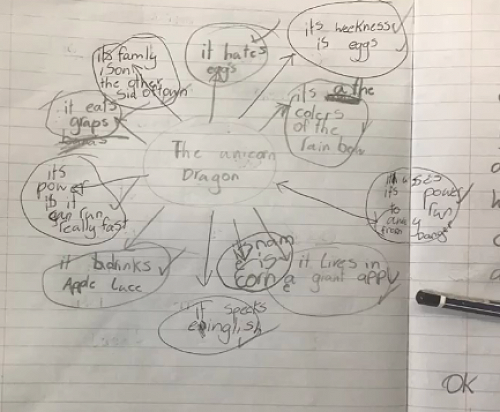 its weekness
is eggs
it hates
eggs
its family
is on
the other
sid of town
its a the
colers
of the
rain bow
it eats
graps
The unicorn
Dragon
its
power
is it
can run
really fast
it uses
its power
to run
away
from
its nam
is
corn
it lives in
a giant appl
it drinks
Apple Luce
it speeks
einglish
OK